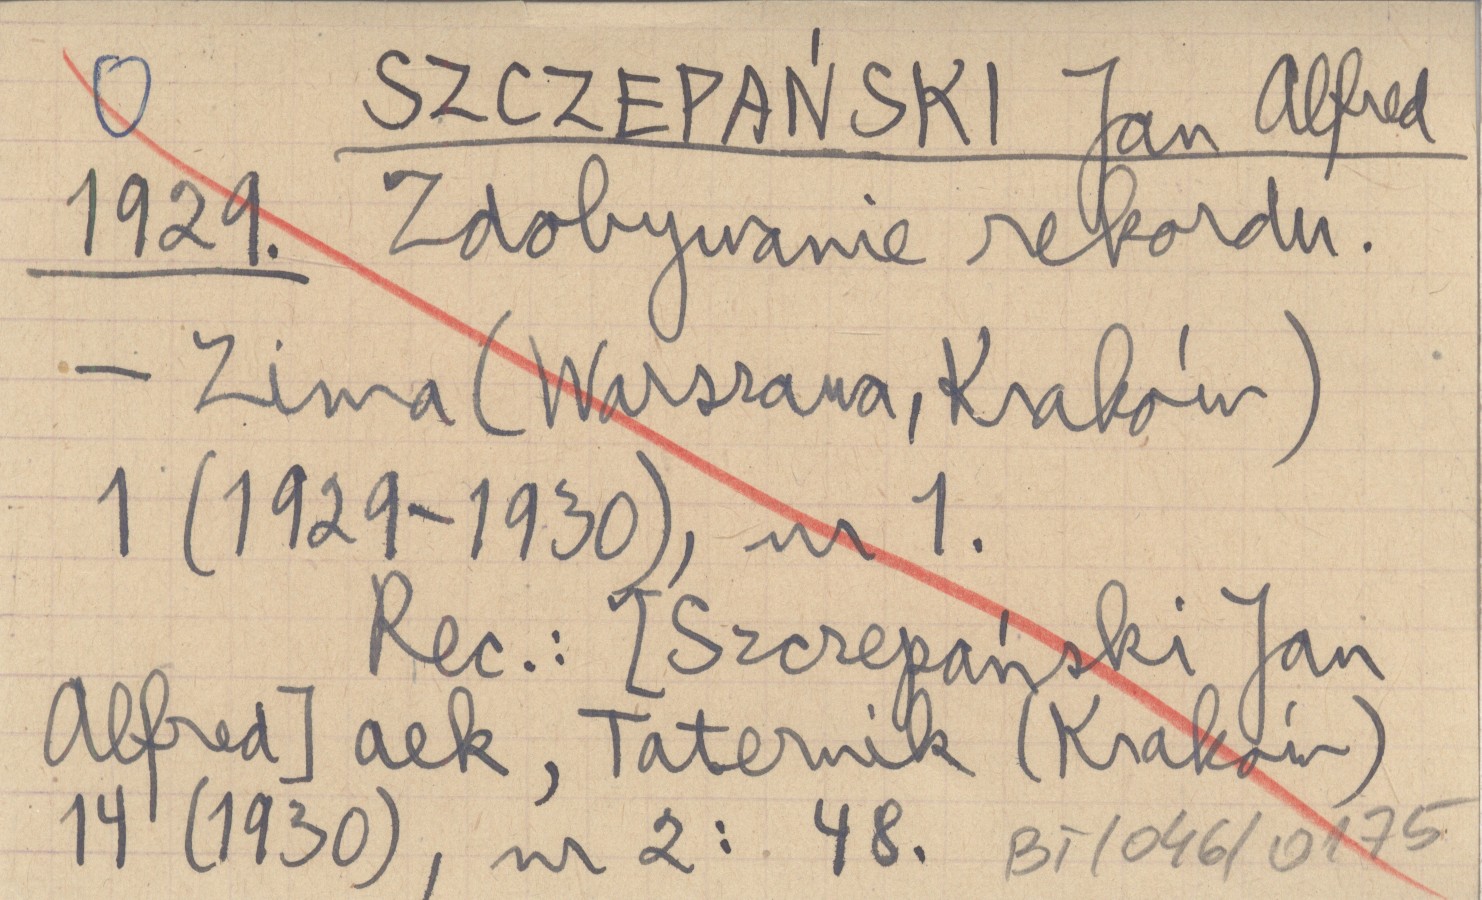 0 SZCZEPAŃSKI Jan Alfred
1929. Zdobywanie rekordu.
— Zima (Warszawa, Kraków)
1 (1929-1930), nr 1.
Rec.: [Szczepański Jan
Alfred] aek, Taternik (Kraków)
14 (1930), nr 2: 48. BT/046/0175